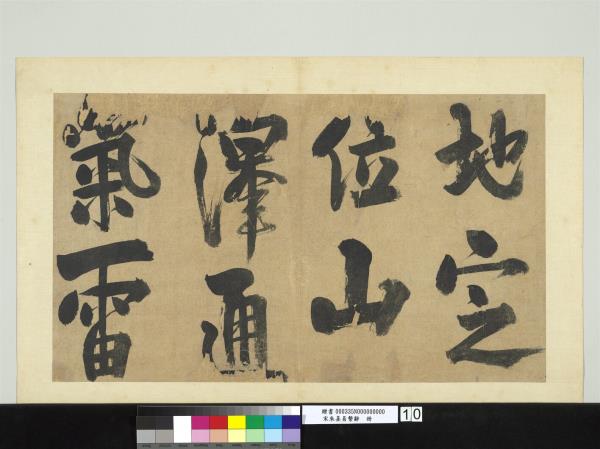 地定
位山
澤通
氣雷
贈書 000335N000000000
宋朱熹易繫辭 冊
10